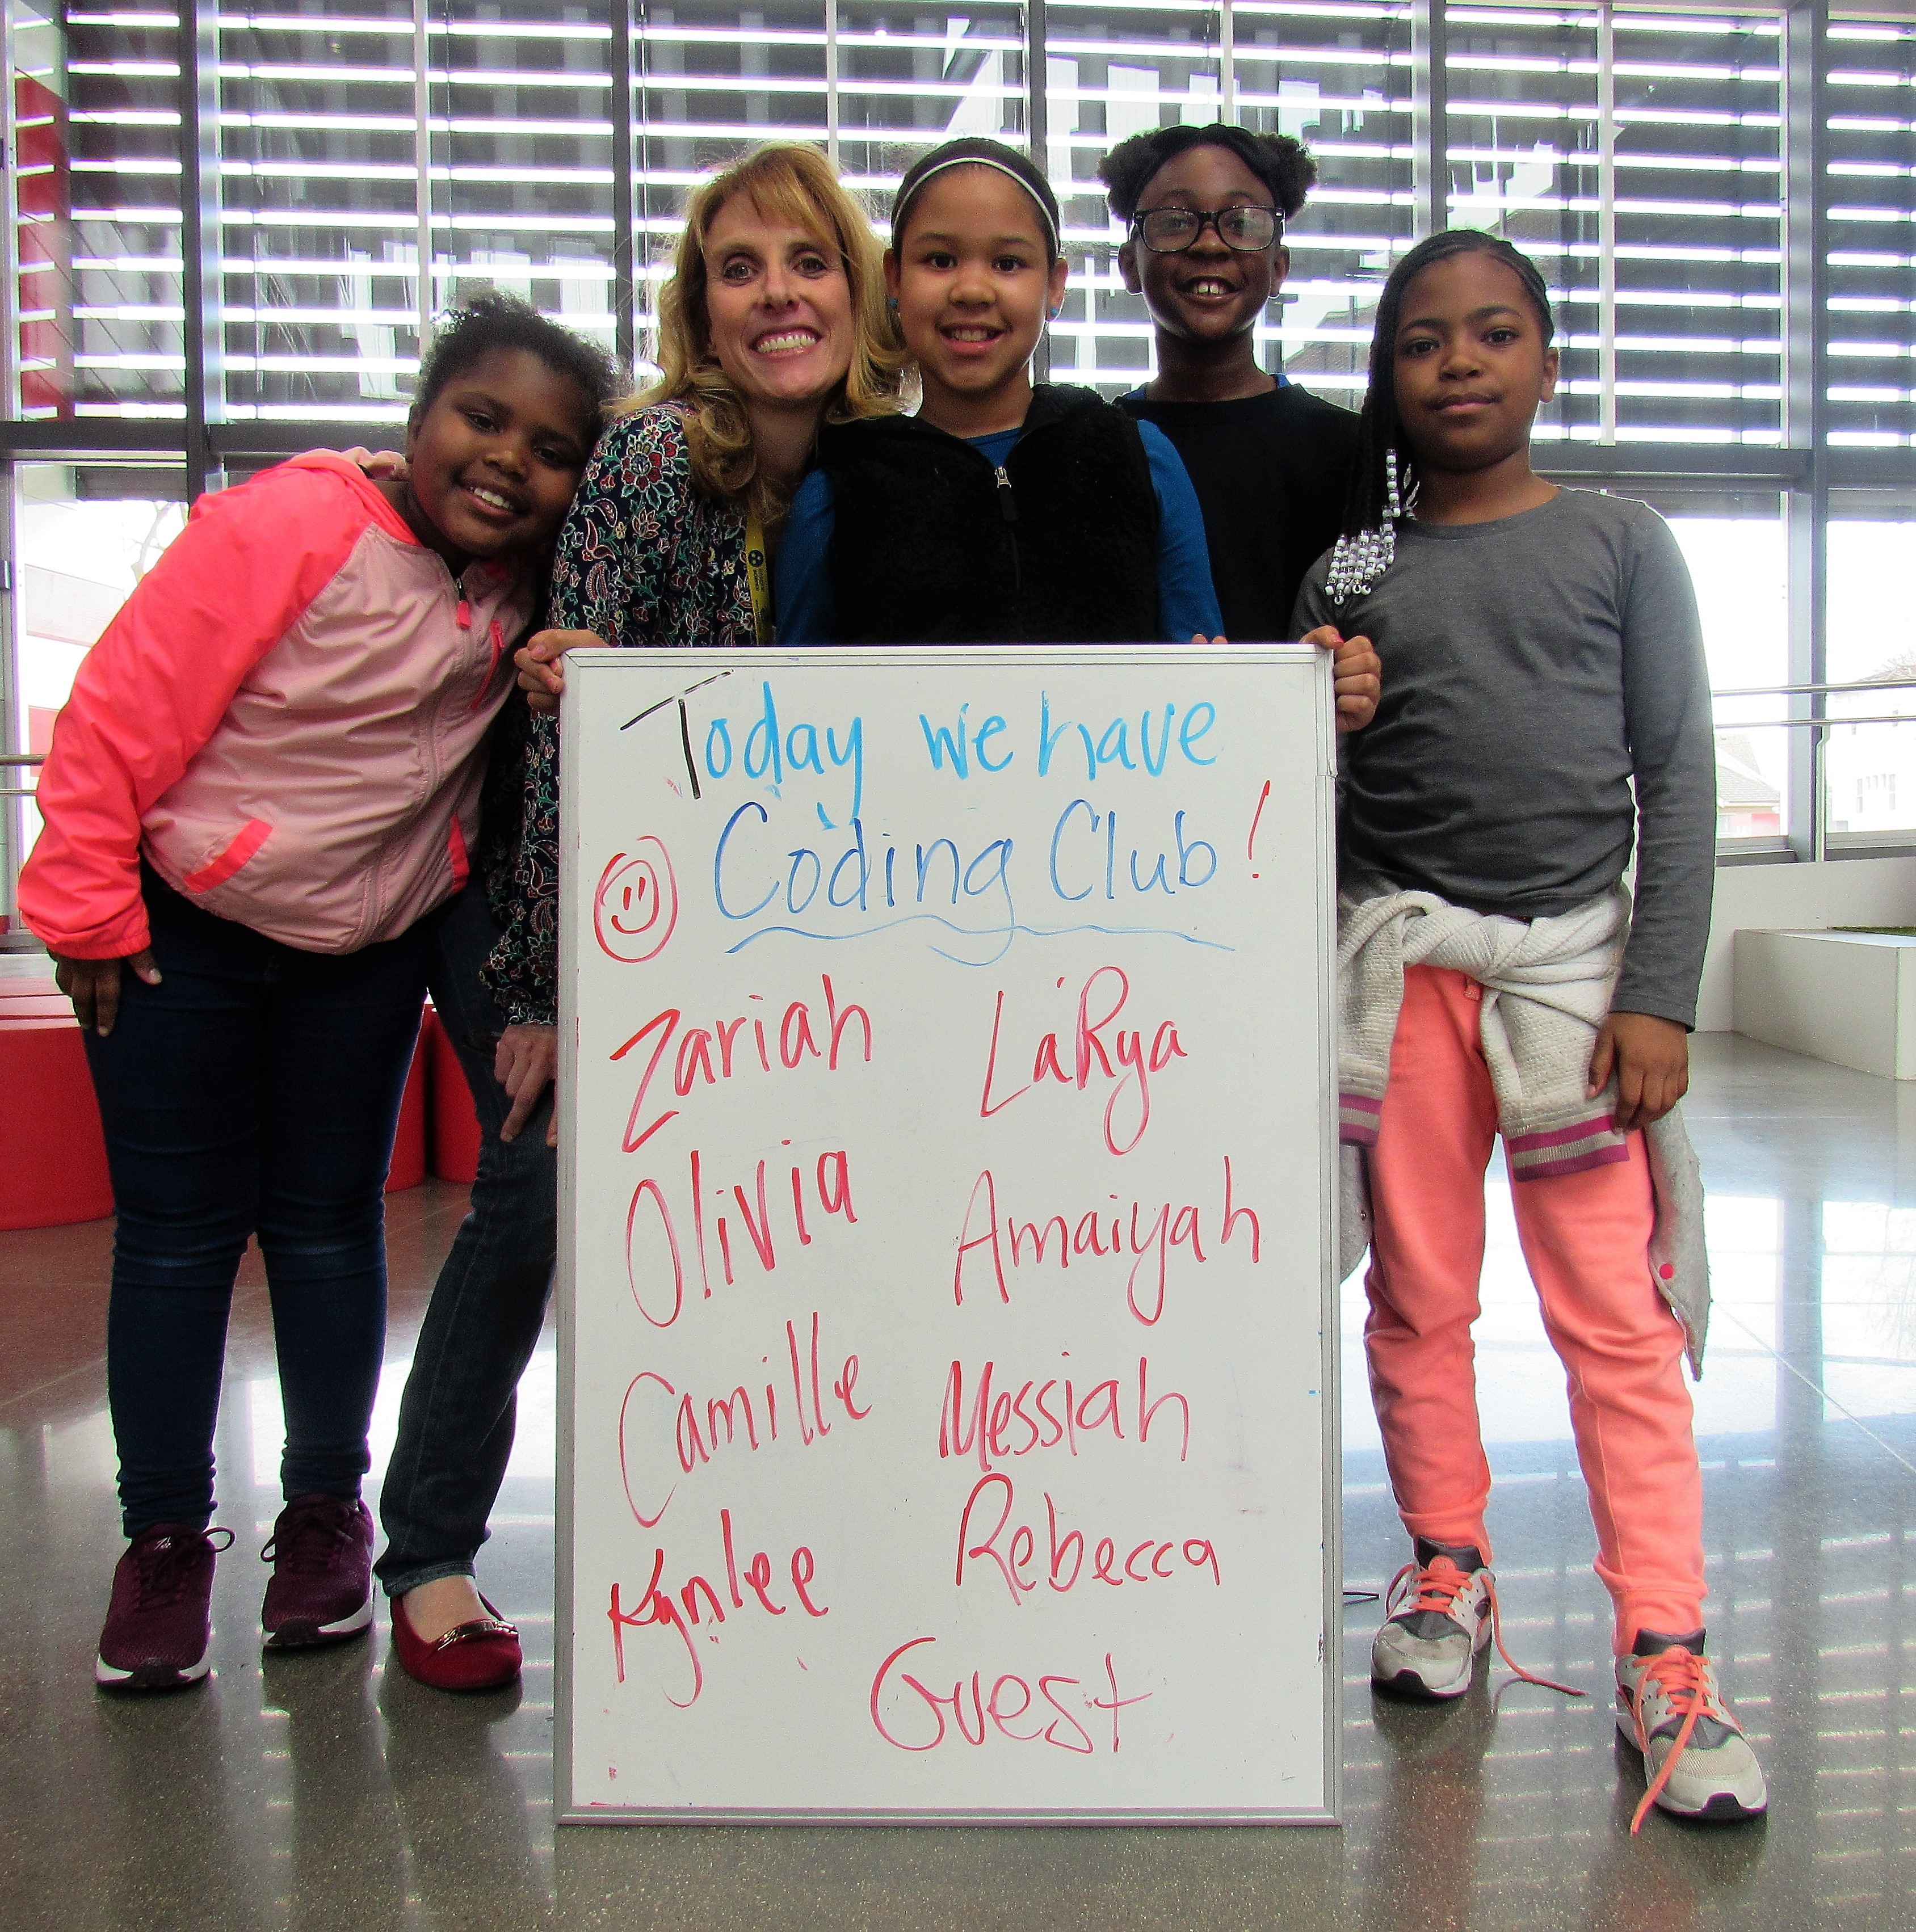 Today we have
Coding Club!
Zariah La'Rya
Olivia Amaiyah
Camille Messiah
Kynlee Rebecca
Guest